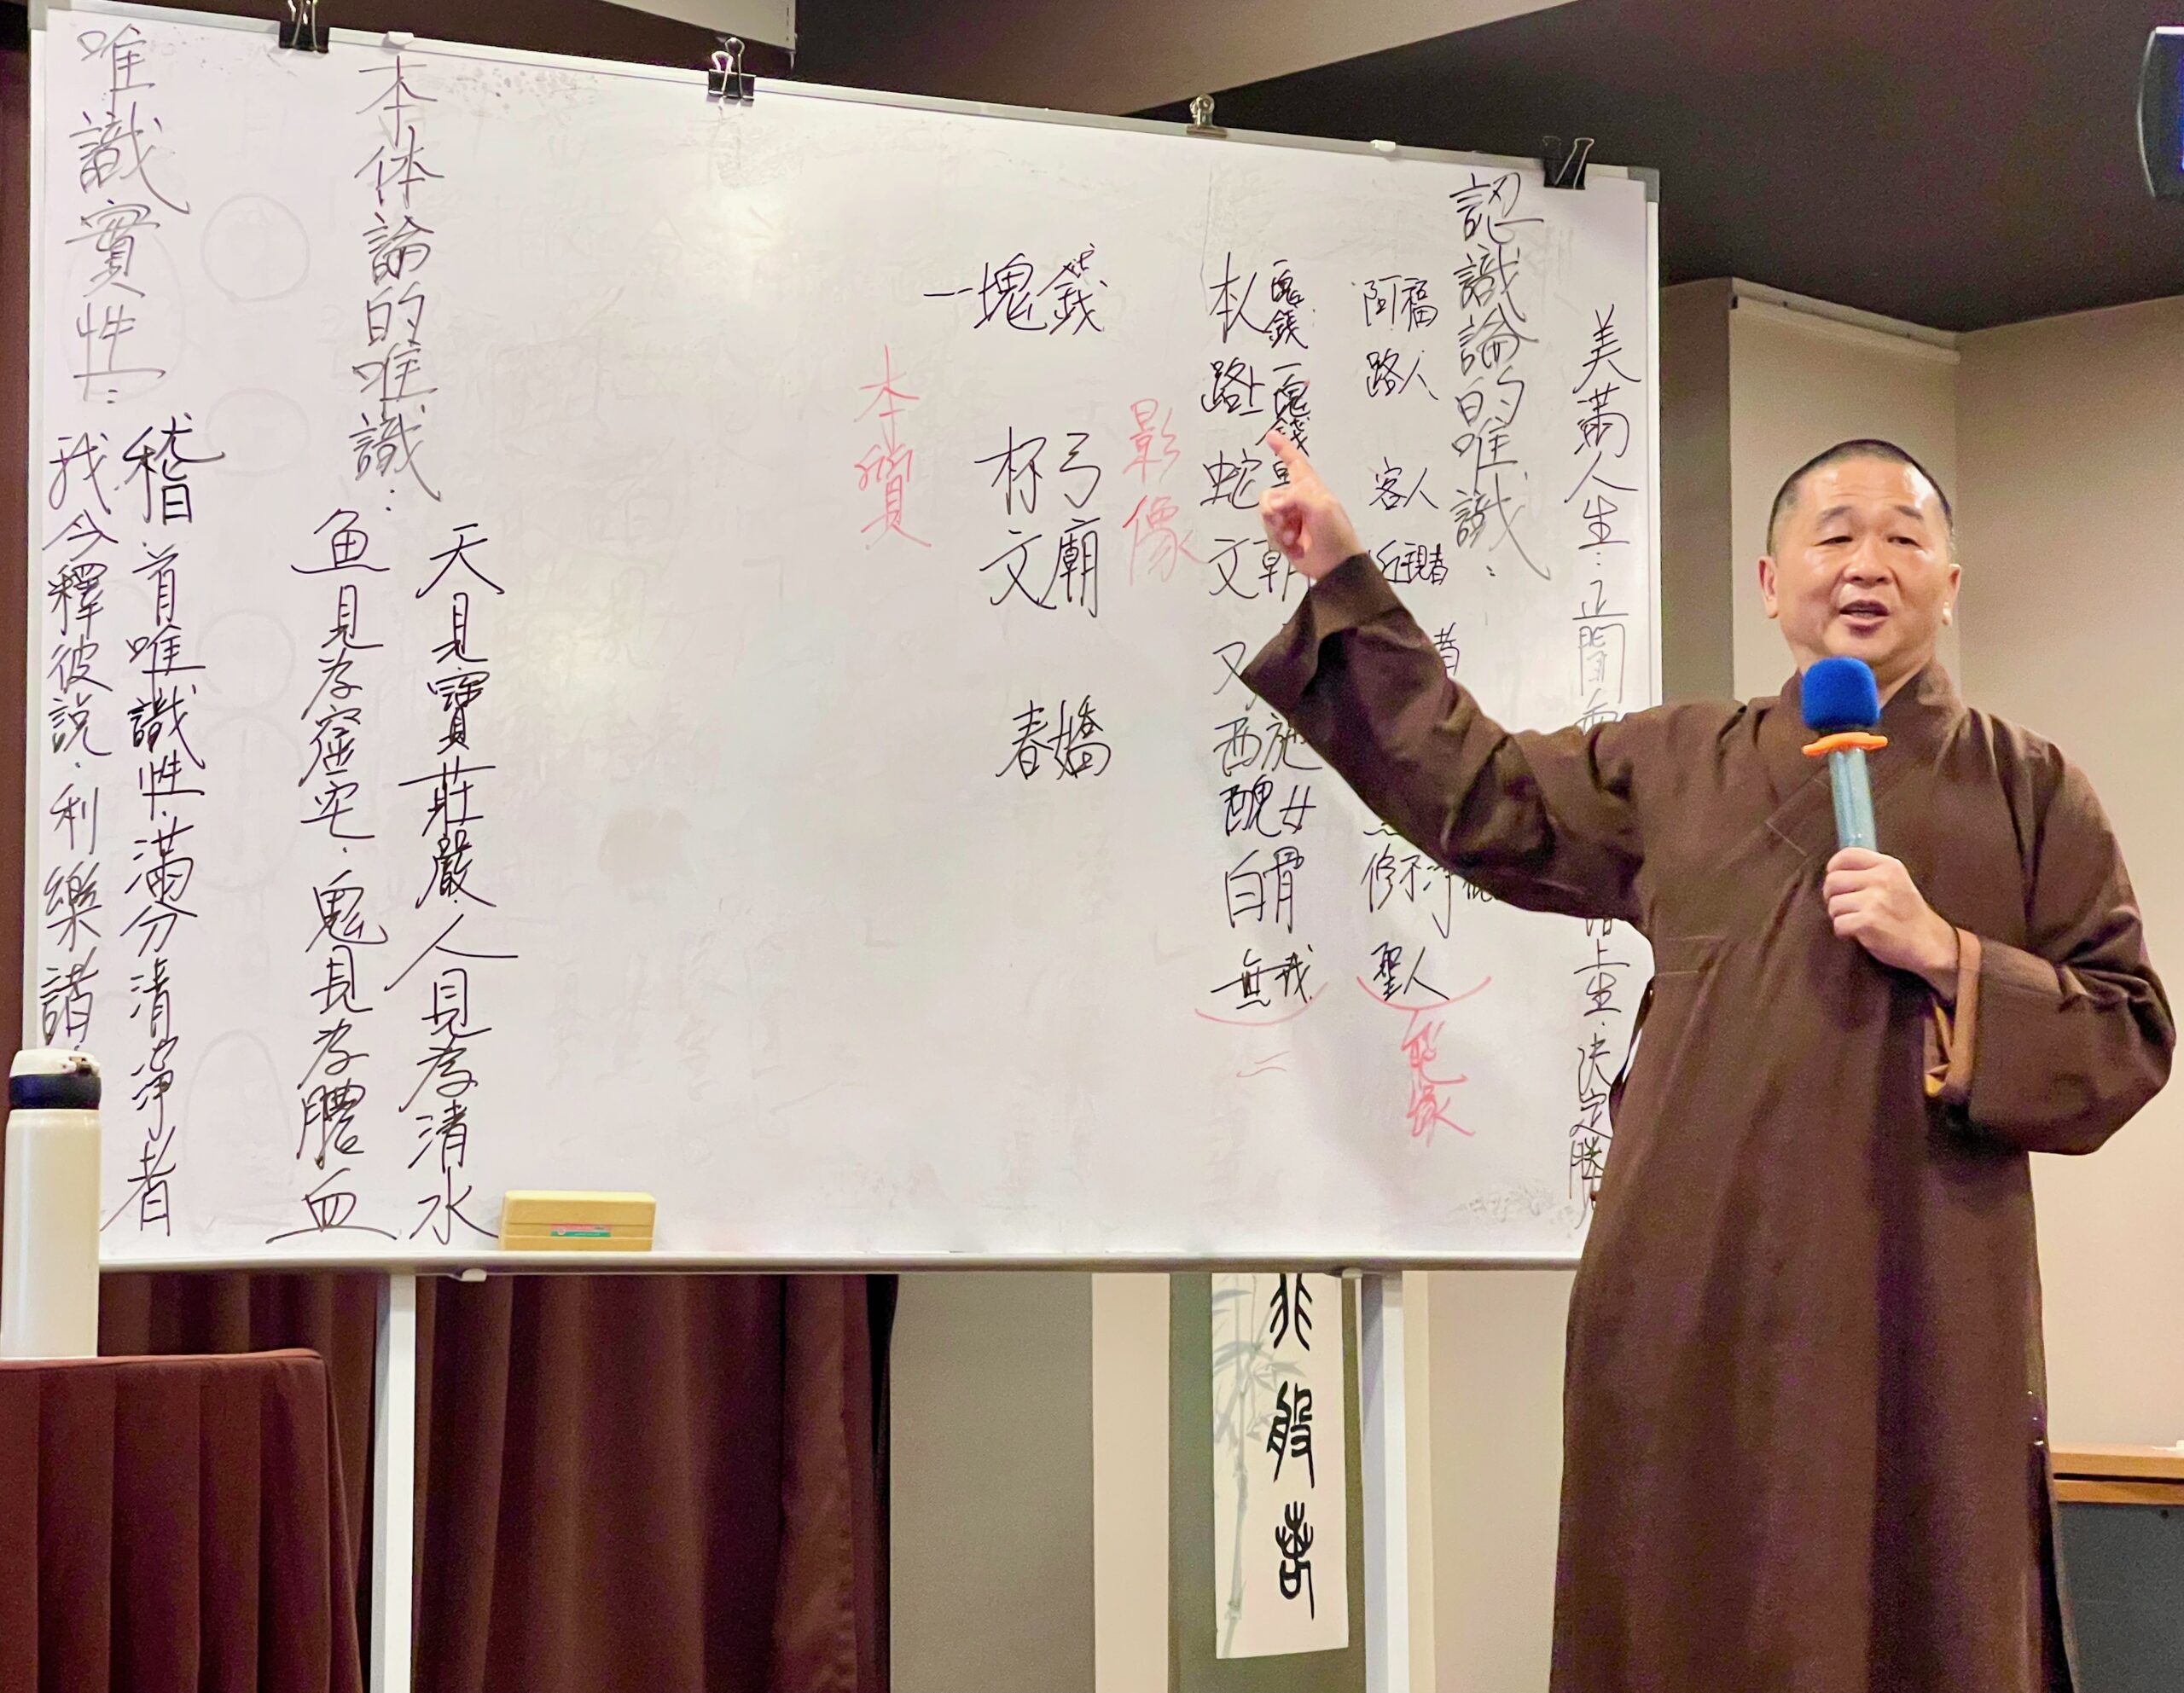 美滿人生：正聞
上生．決定勝
認識論的唯識：
阿福
路人
客人
近視者
者
修不淨
聖人
能緣
一塊錢
一塊錢
本人
路上
蛇
文
又
西施
醜女
白骨
無我
影像
一塊錢
杯弓
文廟
春嬌
本質
本体論的唯識：
天見寶莊嚴．人見為清水
魚見為窟宅．鬼見為膿血
唯識實性：
稽首唯識性．滿分清淨者
我今釋彼說．利樂諸
非
般若